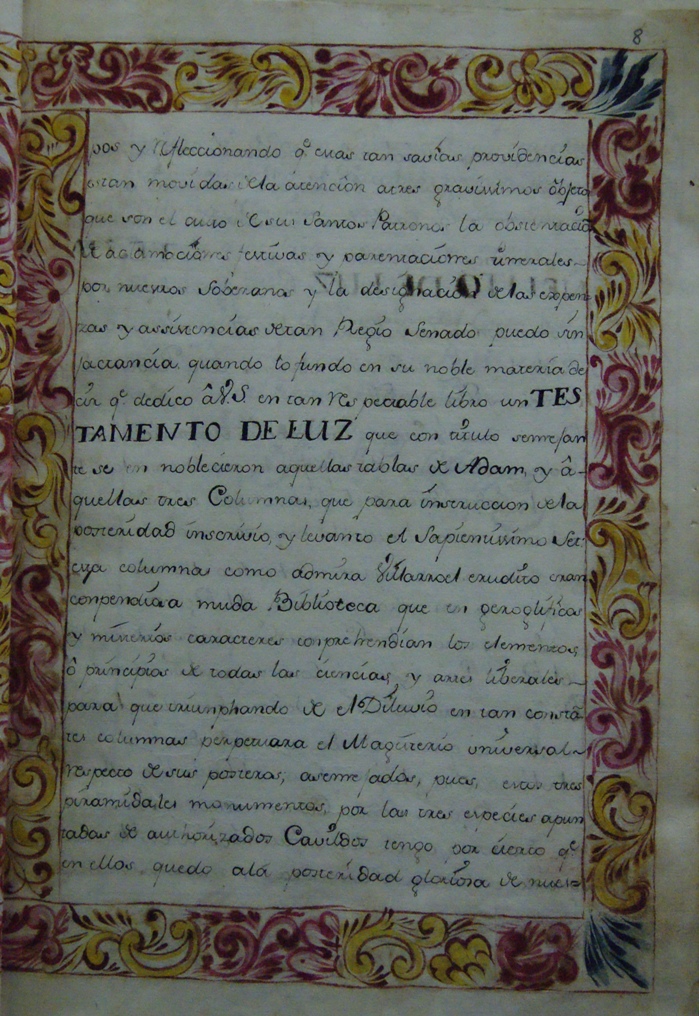 8
pos y refleccionando q.e estas tan savias providencias
estan movidas de la atencion atres gravissimos objeto
que son el culto de sus Santos Patronos la obstentació
de aclamaciones festivas y parentaciones funerales
por nuestros Soberanos y la designacion de las expen
zas y assistencias de tan Regio Senado puedo sin
jactancia quando lo fundo en su noble materia de
cir q.e dedico â V.S. en tan respectable libro un TES
TAMENTO DE LUZ que con titulo semejan
te se en noblecieron aquellas tablas de Adam, y â
quellas tres Columnas, que para instruccion de la
posteridad inscrivio, y levanto el Sapientissimo Set:
cuya columnas como admira Villarroel erudito eran
conpendiosa muda Biblioteca que en geroglificos
y misterios caracteres conprehendian los elementos,
ô principios de todas las ciencias, y artes liberales
para que triunphando de el Diluvio en tan constā
tes columnas perpetuara el Magisterio universal
respecto de sus posteros; asemejados, pues, estos tres
piramidales monumentos, por las tres especies apun
tadas de authorizados Cavildos tengo por cierto q.e
en ellos quedo alá posteridad gloriosa de nues